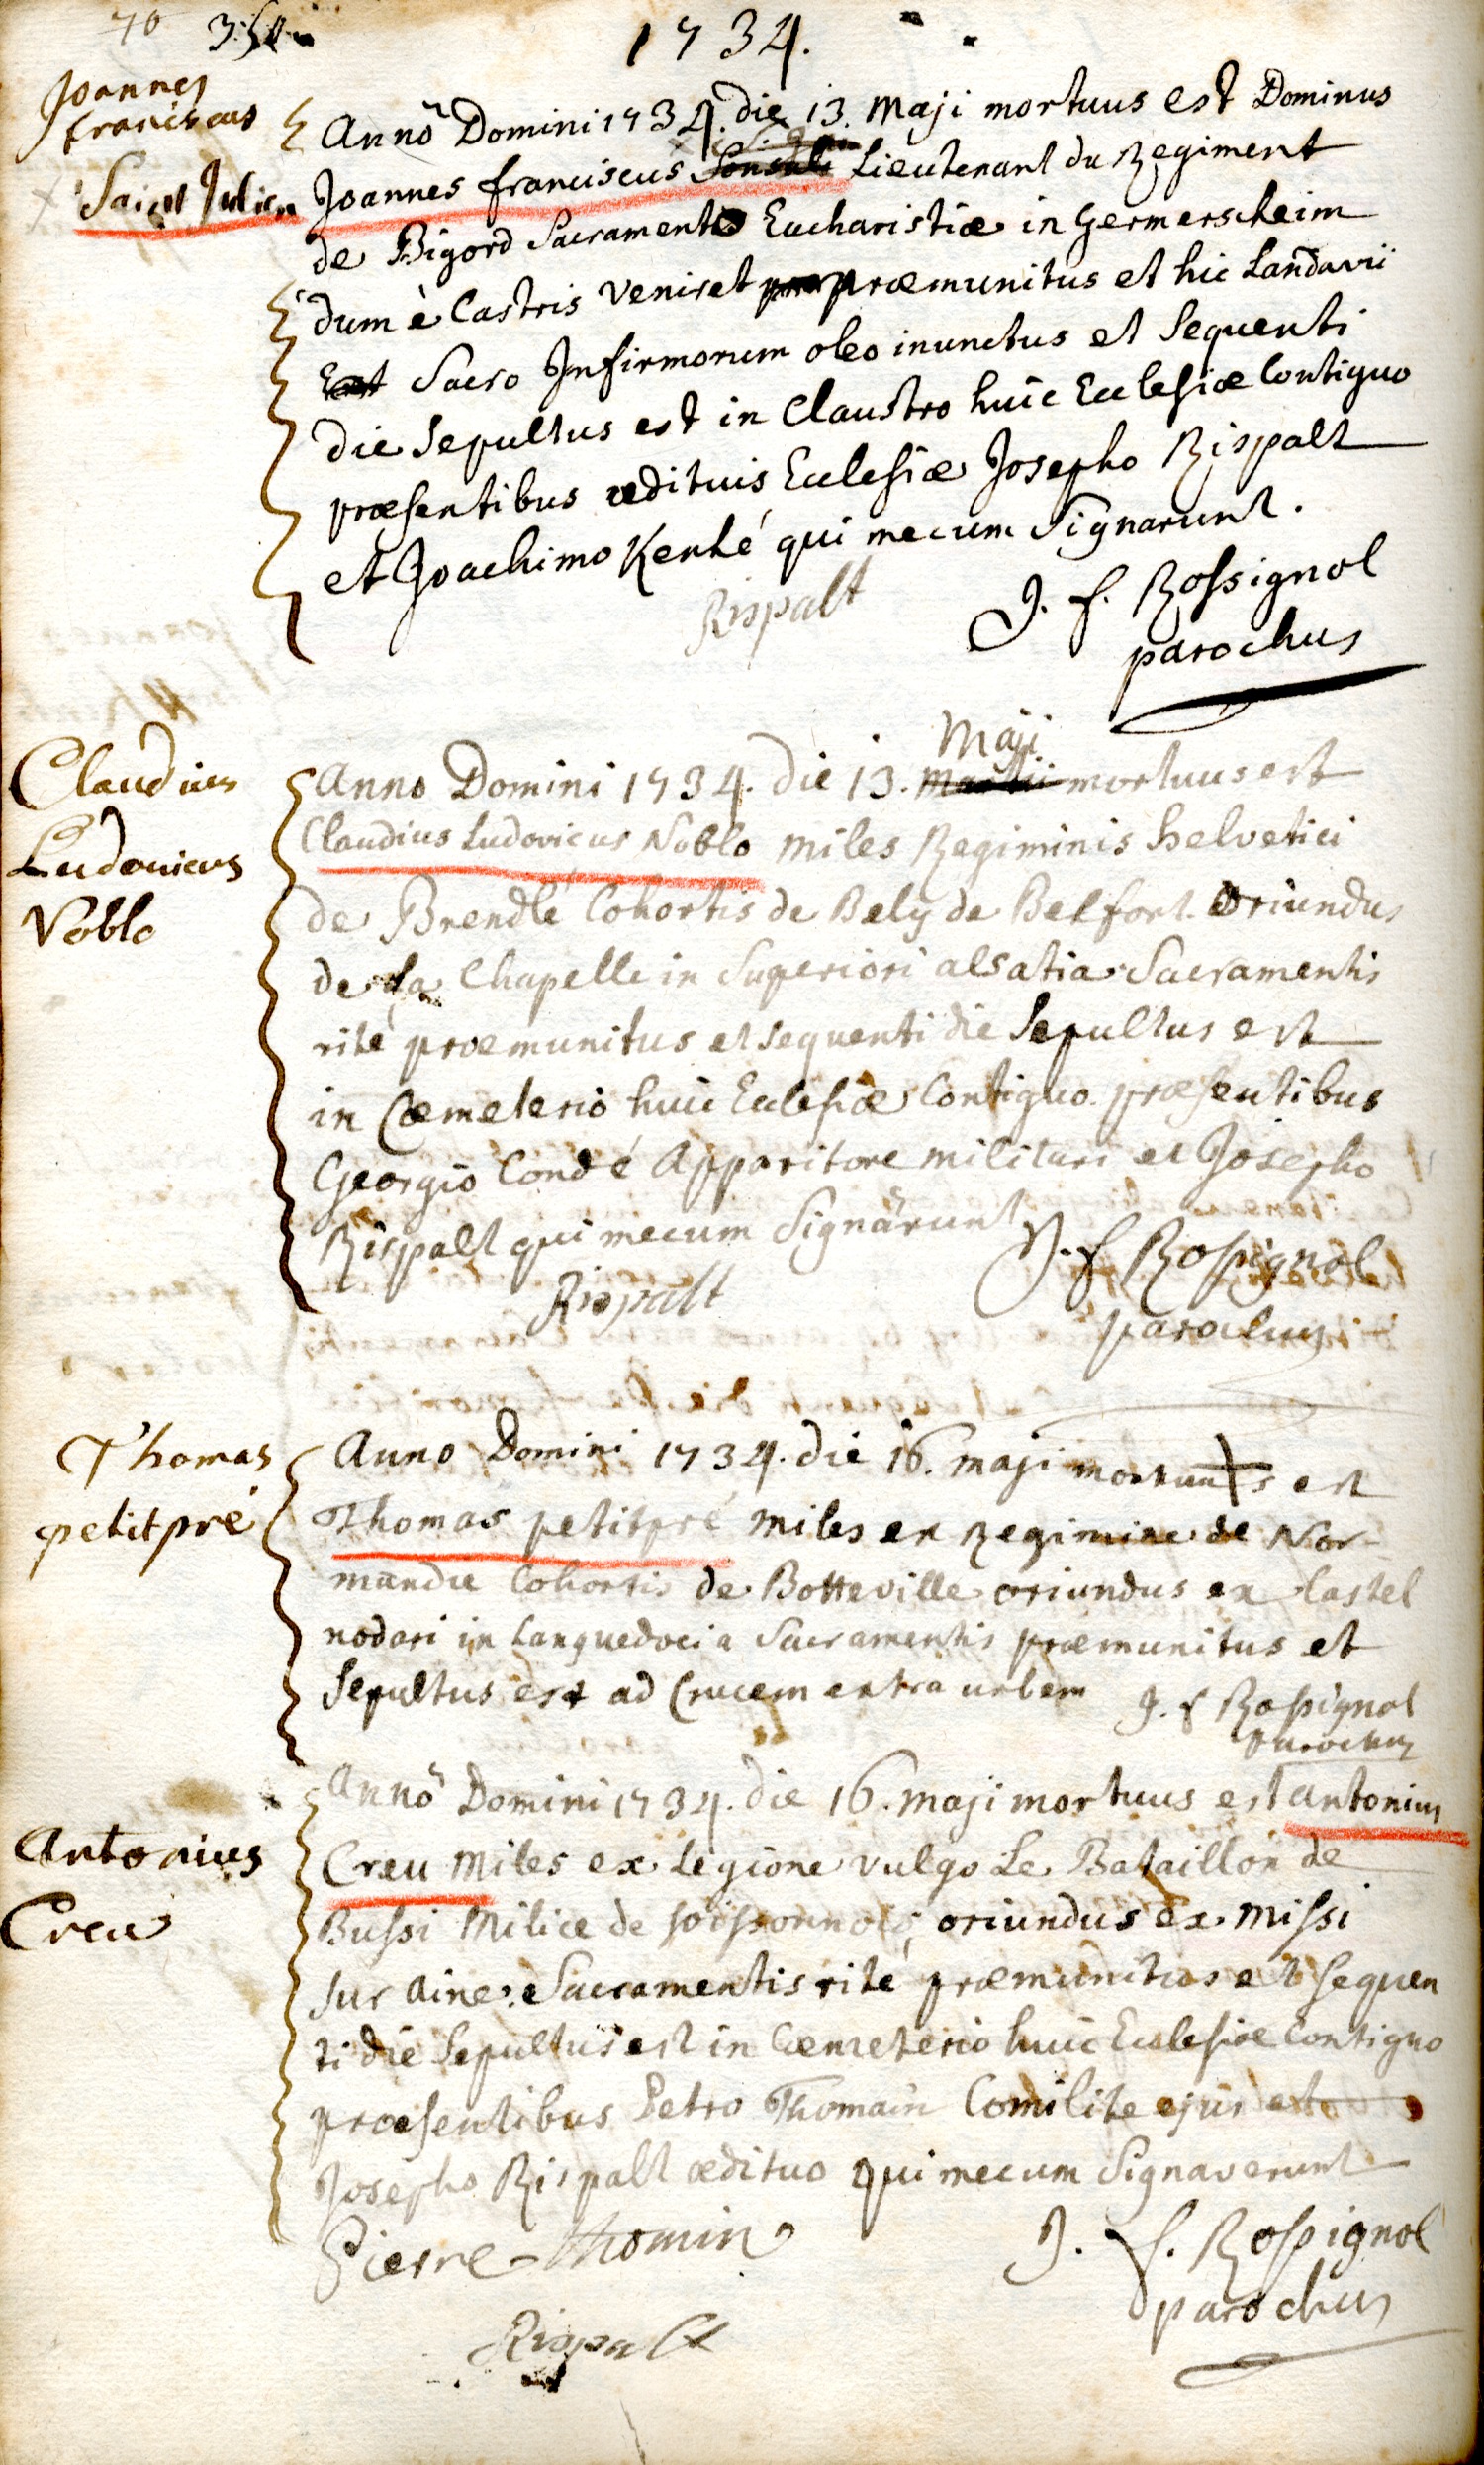 70
1734.
Joannes
franciscus
Saint Julien
Annô Domini 1734. die 13. Maji mortuus est Dominus
Joannes franciscus Lieutenant du Regiment
de Bigord Sacramento Eucharistiæ in Germerscheim
dum è Castris Veniret præmunitus et hic Landavii
Sacro Infirmorum oleo inunctus et Sequenti
die Sepultus est in Claustro huic Ecclesiæ Contiguo
præsentibus ædituis Ecclesiæ Josepho Rispalt
et Joachimo Kenlé qui mecum Signarunt.
Rispalt
J. f. Rossignol
parochus
Claudius
Ludovicus
Noblo
Maji
Anno Domini 1734. die 13. mortuus est
Claudius Ludovicus Noblo miles Regiminis helvetici
de Brendlé Cohortis de Bely de Belfort Oriundus
de La Chapelle in Superiori alsatia Sacramentis
rité præmunitus et sequenti die Sepultus est
in Cæmeterio huic Ecclesiæ Contiguo præsentibus
Georgio Condé Apparitore militari et Josepho
Rispalt qui mecum Signârunt
J. f Rossignol
Rispalt
parochus
Thomas
petitpré
Anno Domini 1734. die 16. maji mortuus est
Thomas petitpré miles ex Regimine de Nor-
mandie Cohortis de Botteville oriundus ex Castel
nodari in Languedocia Sacramentis præmunitus et
Sepultus est ad Crucem extra urbem J. f Rossignol
parochus
Antonius
Creu
Annô Domini 1734. die 16. maji mortuus est antonius
Creu Miles ex Legione vulgo Le Bataillon de
Bussi Milice de soissonnois, oriundus ex Missi
sur Aine Sacramentis rité præmunitus et sequen
ti die Sepultus est in Cæmeterio huic Ecclesiæ Contiguo
præsentibus Petro Thomain Comilite ejus et
Josepho Rispalt ædituo qui mecum Signaverunt
Pierre Thomin
J. f. Rossignol
parochus
Rispalt